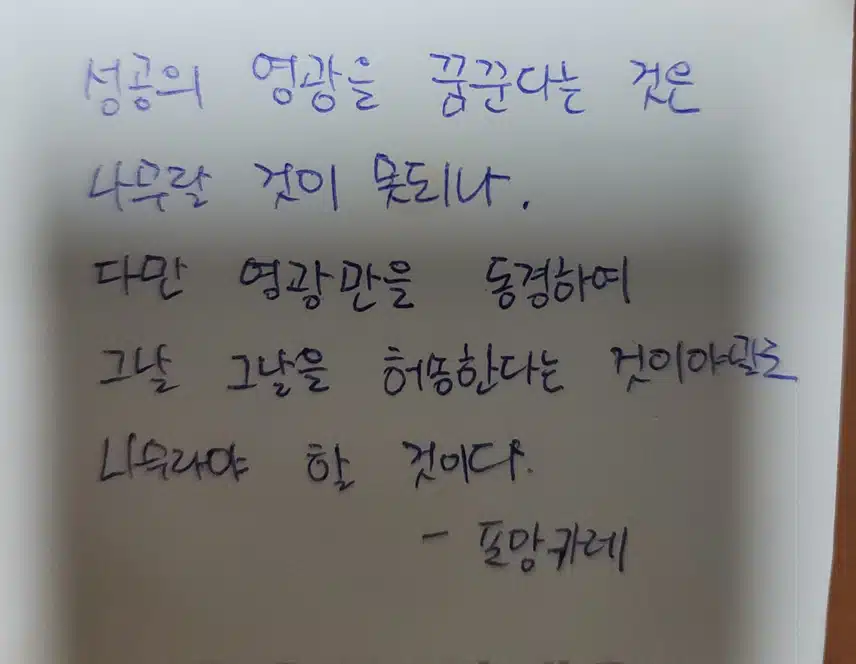 성공의 영광을 꿈꾼다는 것은
나무랄 것이 못되나.
다만 영광만을 동경하여
그날 그날을 허송한다는 것이야말로
나무라야 할 것이다.
- 포앙카레